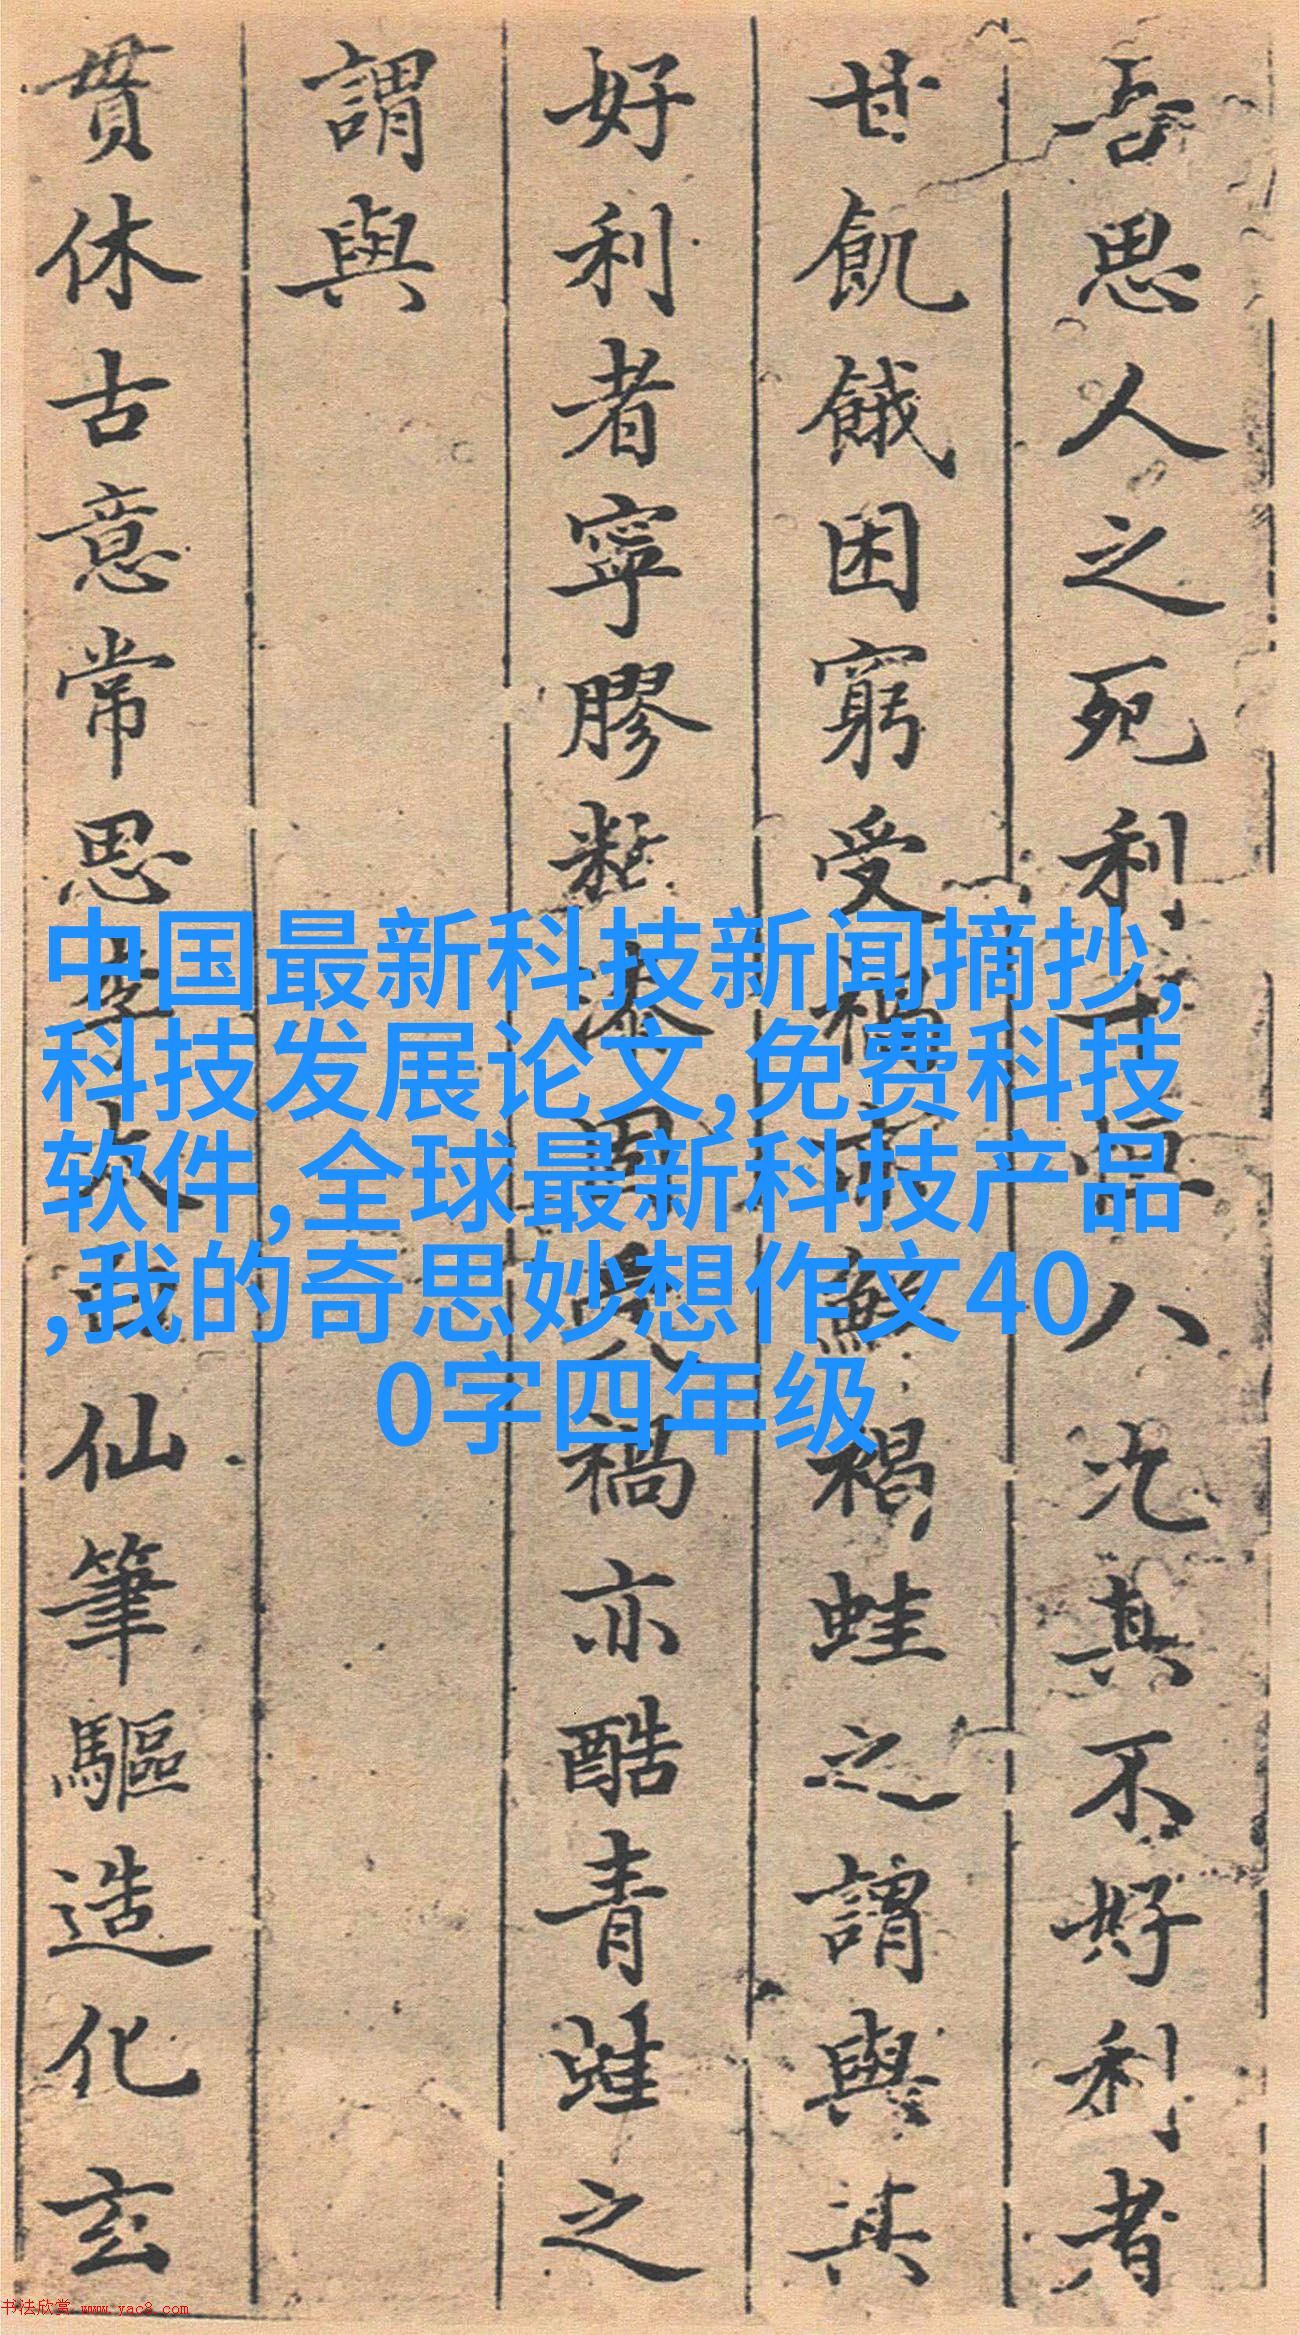 吾思人之死利十恒八况其不好利者
甘飢餓困窮受禍亦鮮禍蛙之謂與其
好利者寧膠黏漆固受禍亦酷青蛙之
謂與
貫休古意常思李太白仙筆驅造化玄
中国最新科技新闻摘抄,
科技发展论文,免费科技
软件,全球最新科技产品
,我的奇思妙想作文40
0字四年级
书法欣赏 www.yac8.com